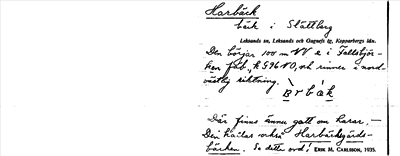 Harbäck
bäck i Slättberg
Leksands sn, Leksands och Gagnefs tg, Kopparbergs län.
Den börjar 100 m NV e i
fäb., och rinner i nord-
västlig riktning.
Där finns ännu gott om harar. —
Den kallas också Harbäcksgårds-
bäcken. Se detta ord! ERIK M. CARLSSON, 1935.